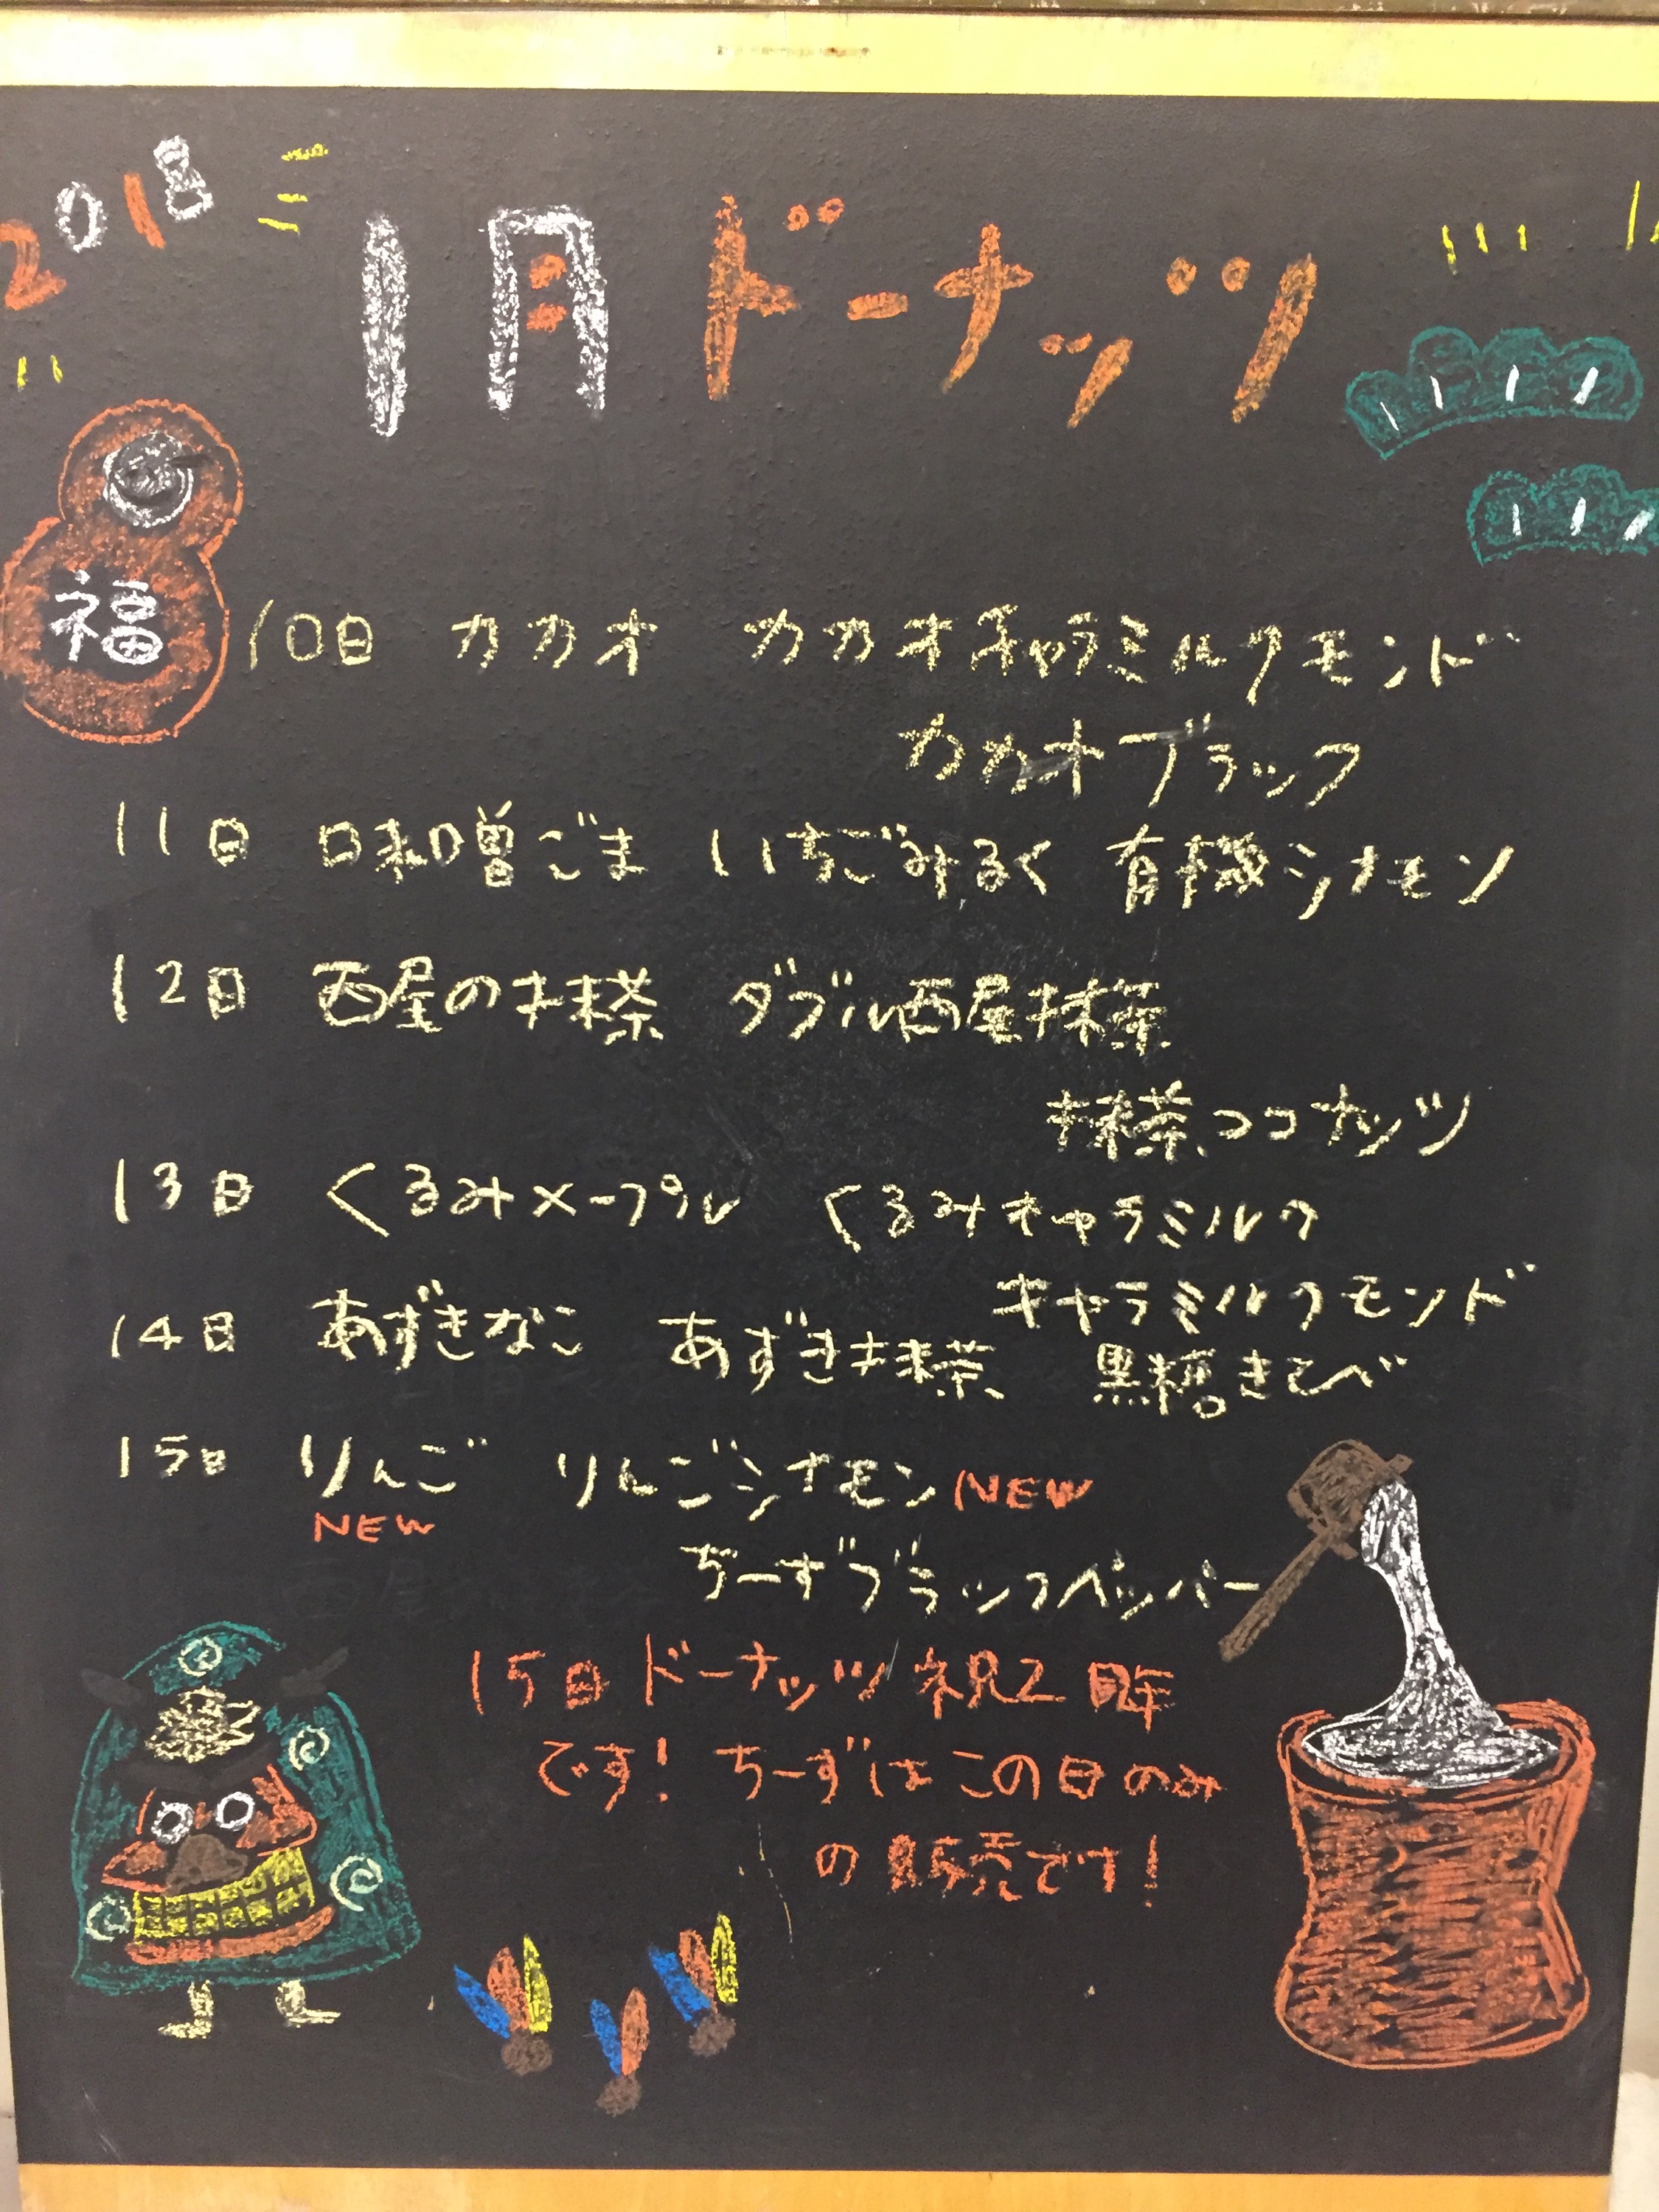 2018
1月ドーナッツ
福
10日 カカオ カカオキャラミルクモンド
カカオブラック
11日 味噌ごま いちごみるく 有機シナモン
12日 西屋の抹茶 ダブル西尾抹茶
抹茶ココナッツ
13日 くるみメープル くるみキャラミルク
キャラミルクモンド
14日 あずきなこ あずき抹茶 黒糖きび
15日 りんご りんごシナモン NEW
NEW
ちーずブラックペッパー
15日ドーナッツ祝2周年
です! ちーずはこの日のみ
の販売です!